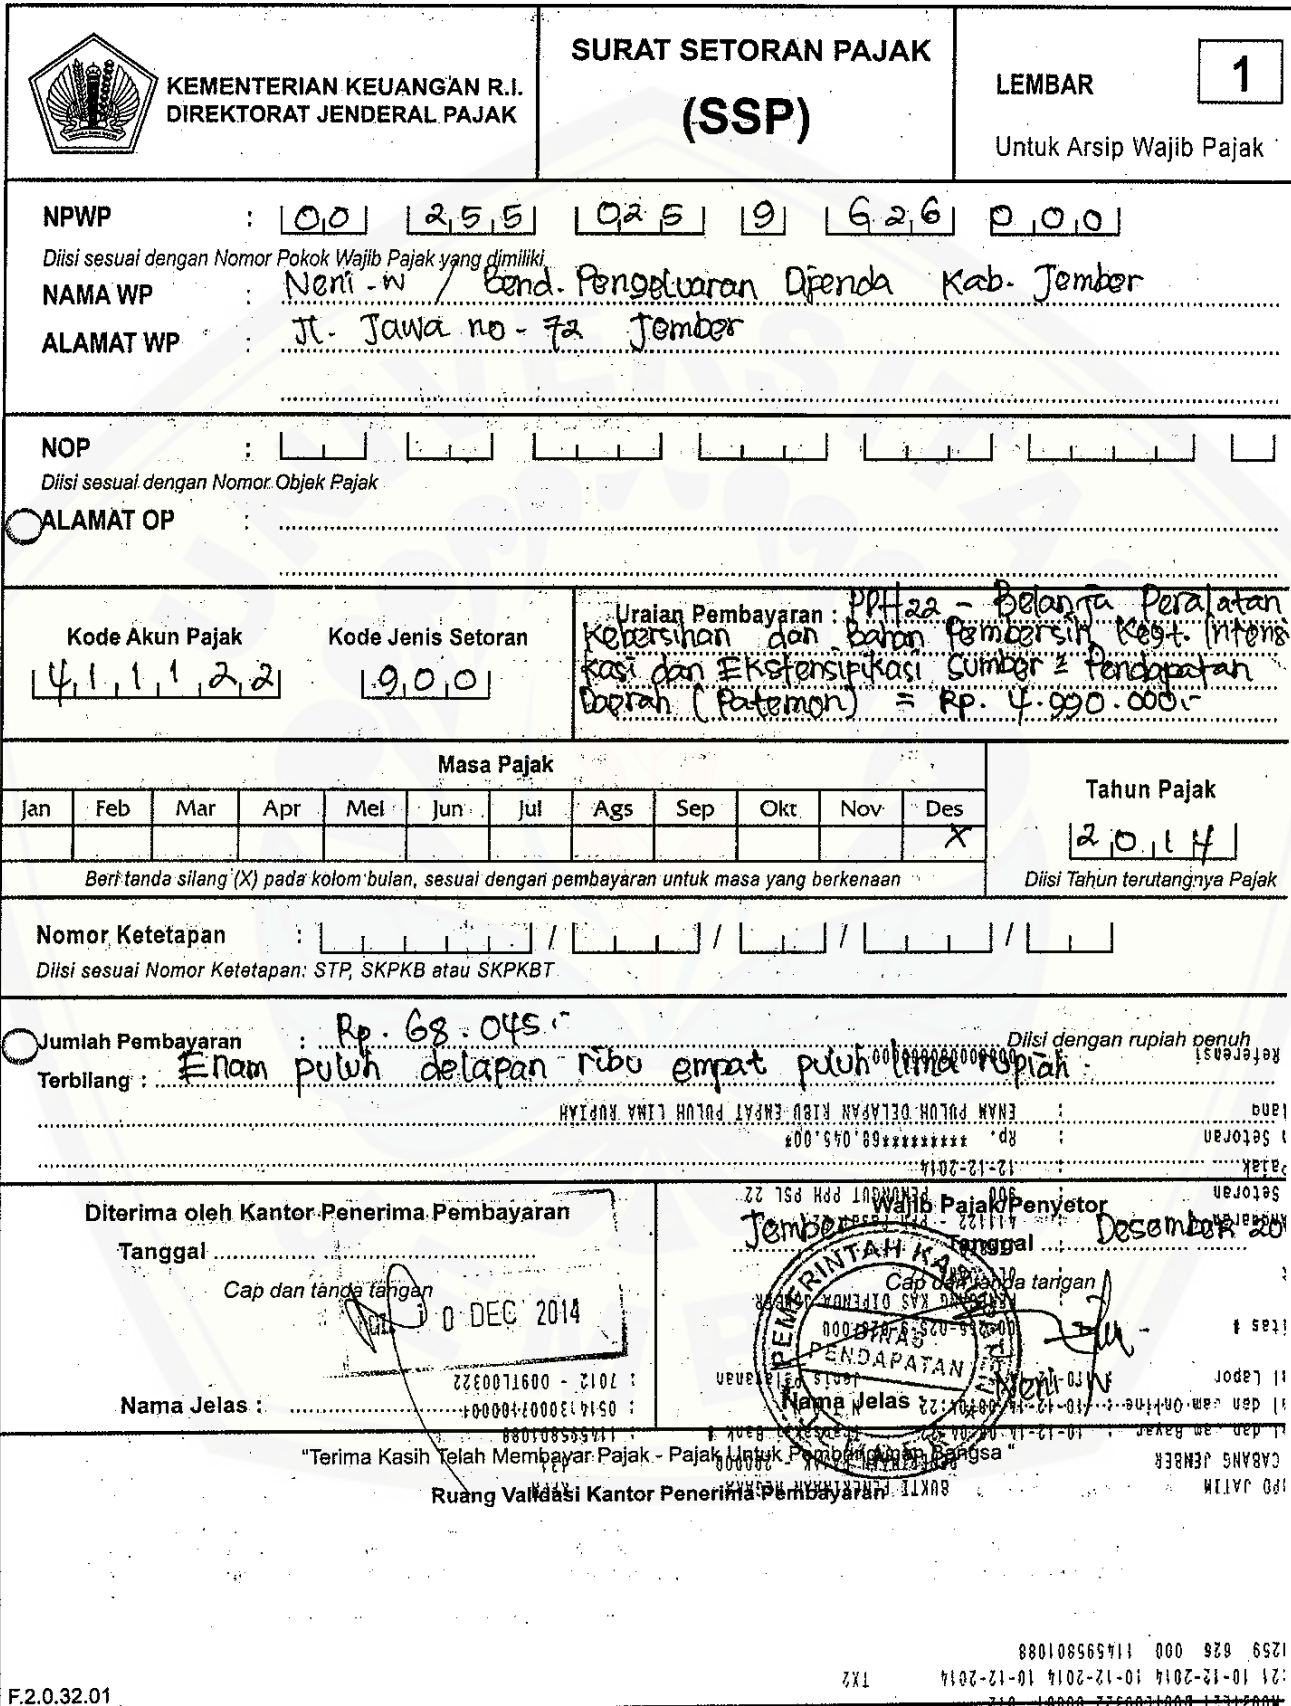 KEMENTERIAN KEUANGAN R.I.
DIREKTORAT JENDERAL PAJAK
SURAT SETORAN PAJAK
(SSP)
LEMBAR 1
Untuk Arsip Wajib Pajak
NPWP : 00 255 025 9 626 000
Diisi sesuai dengan Nomor Pokok Wajib Pajak yang dimiliki
NAMA WP : Neni - W / Bend. Pengeluaran Dipenda Kab. Jember
ALAMAT WP : Jl. Jawa no - 72 Jember
NOP :
Diisi sesuai dengan Nomor Objek Pajak
ALAMAT OP :
Kode Akun Pajak
411122
Kode Jenis Setoran
900
Uraian Pembayaran : PPH22 - Belanja Peralatan
Kebersihan dan Bahan Pembersih Kegt. Intensi
kasi dan Ekstensifikasi Sumber 2 Pendapatan
Daerah (Patemon) = Rp. 4.990.000.-
Masa Pajak
Jan Feb Mar Apr Mei Jun Jul Ags Sep Okt Nov Des
X
Beri tanda silang (X) pada kolom bulan, sesuai dengan pembayaran untuk masa yang berkenaan
Tahun Pajak
2014
Diisi Tahun terutangnya Pajak
Nomor Ketetapan : / / / /
Diisi sesuai Nomor Ketetapan: STP, SKPKB atau SKPKBT
Jumlah Pembayaran : Rp. 68.045.-
Diisi dengan rupiah penuh
Terbilang : Enam puluh delapan ribu empat puluh lima rupiah.
Referensi
ENAM PULUH DELAPAN RIBU EMPAT PULUH LIMA RUPIAH
Setoran : Rp. **********68.045.00*
Pajak : 12-12-2014
Setoran : 900 PEMUNGUT PPH PSL 22
Diterima oleh Kantor Penerima Pembayaran
Tanggal
Cap dan tanda tangan
10 DEC 2014
Nama Jelas :
Wajib Pajak/Penyetor
Jember Tanggal Desember 20
Cap dan tanda tangan
PEMERINTAH
DINAS
PENDAPATAN
Neni W
Nama Jelas :
: 7012 - 0091700322
Lapor
CABANG JEMBER
JATIM
BUKTI PENERIMAAN NEGARA
"Terima Kasih Telah Membayar Pajak - Pajak Untuk Pembangunan Bangsa "
Ruang Validasi Kantor Penerima Pembayaran
1259 626 000 114595801088
10-12-2014 10-12-2014 10-12-2014 TX2
F.2.0.32.01